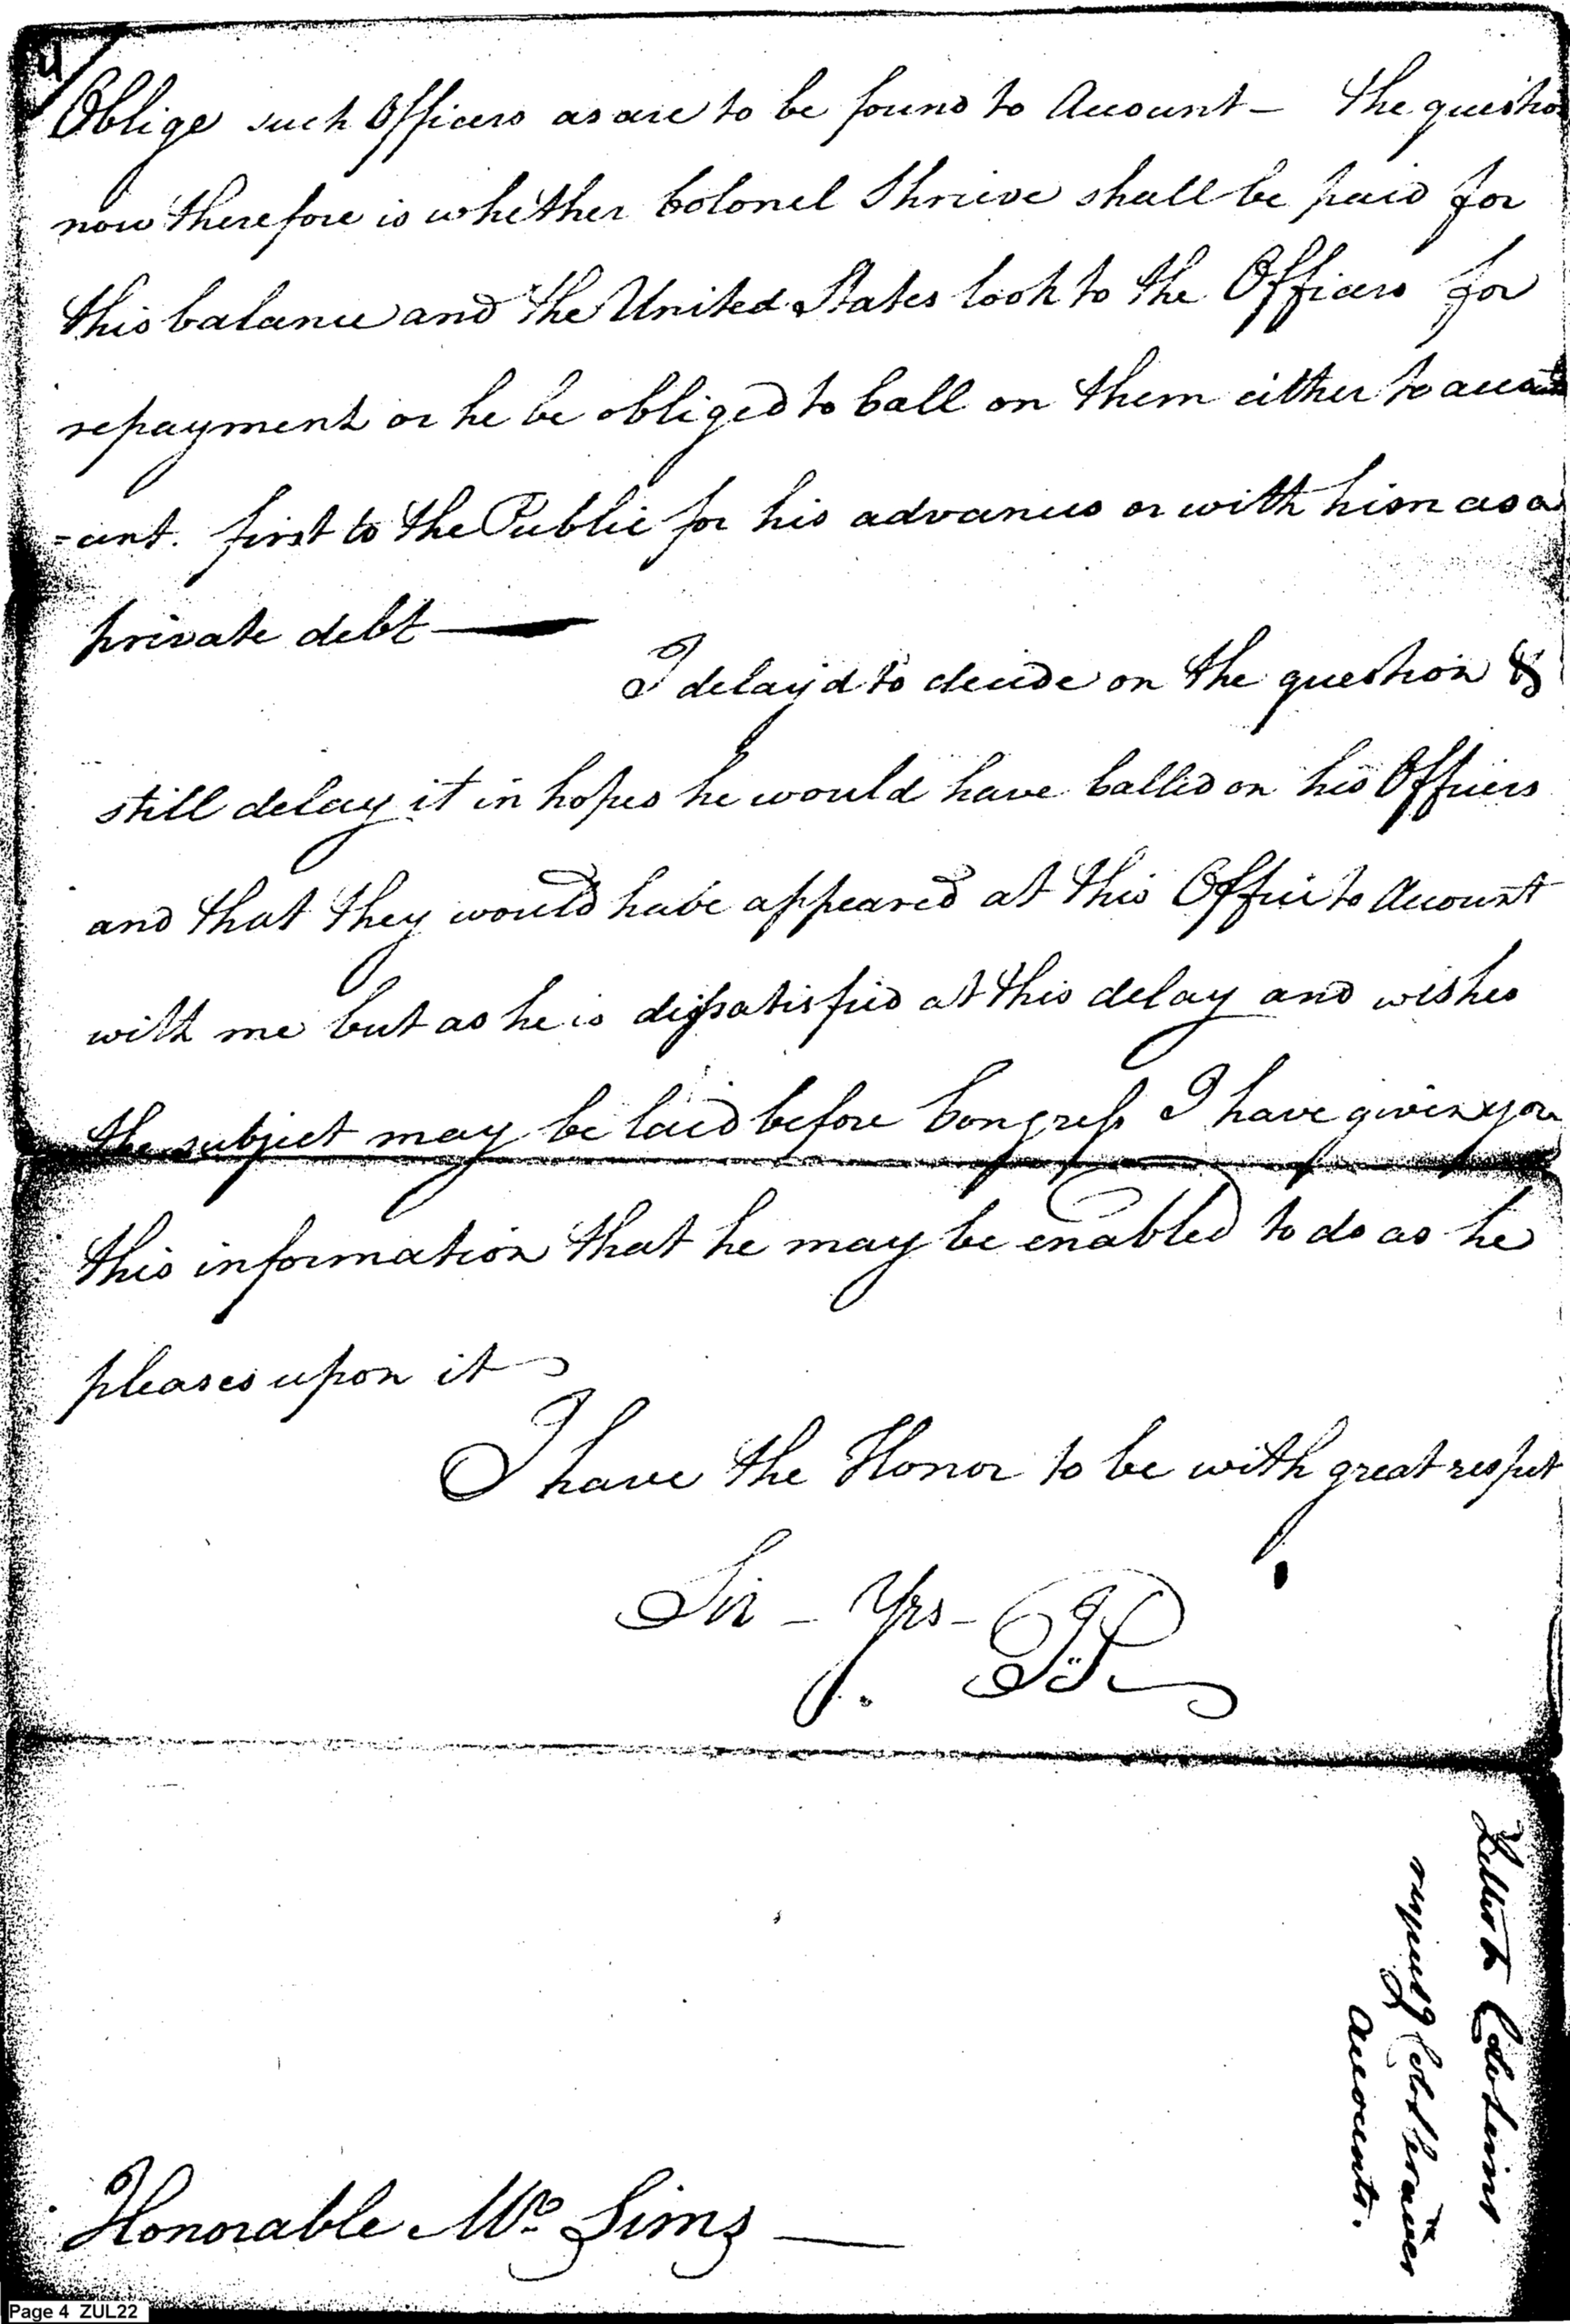 4
Oblige such Officers as are to be found to Account — The question
now therefore is whether Colonel Shrieve shall be paid for
this balance and the United States look to the Officers for
repayment or he be obliged to Call on them either to acco
=unt. first to the Public for his advances or with him as a
private debt —
I delay'd to decide on the question &
still delay it in hopes he would have Called on his Officers
and that they would have appeared at this Office to Account
with me but as he is dissatisfied at this delay and wishes
the subject may be laid before Congress I have given you
this information that he may be enabled to do as he
pleases upon it
I have the Honor to be with great respect
Sir — Yrs —
Honorable Mr. Sims —
Letter to
respecting
Accounts.
Page 4 ZUL22